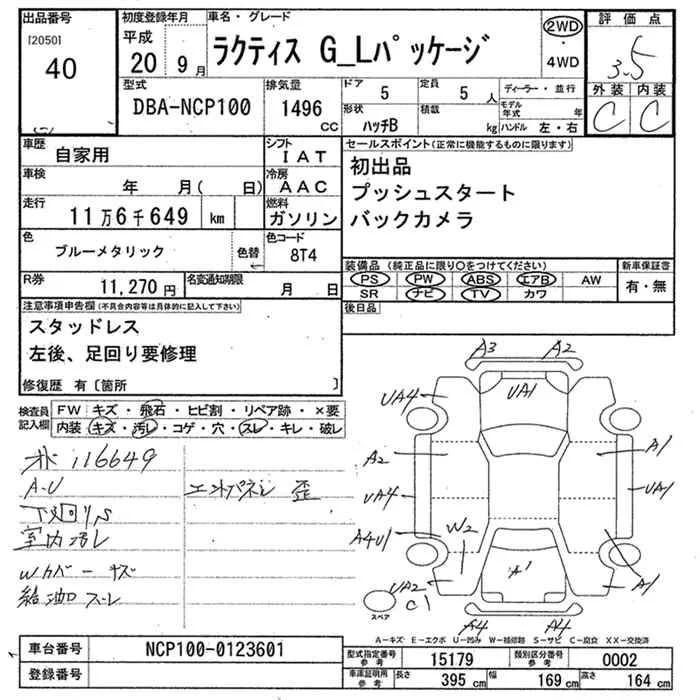 出品番号
[2050]
40
初度登録年月
平成
20 9 月
車名・グレード
ラクティス G_Lパッケージ
2WD
・
4WD
評価点
3.5
外装 内装
C C
型式
DBA-NCP100
排気量
1496 cc
ドア 5
定員 5 人
形状 ハッチB
積載 kg
ディーラー・並行
モデル年式 年
ハンドル 左・右
車歴 自家用
シフト IAT
車検 年 月( 日)
冷房 AAC
走行 11万6千649 km
燃料 ガソリン
色 ブルーメタリック 色替
色コード 8T4
R券 11,270 円
名変通知期限 月 日
セールスポイント(正常に機能するものに限ります)
初出品
プッシュスタート
バックカメラ
装備品(純正品に限り○をつけてください)
PS PW ABS エアB AW
SR ナビ TV カワ
新車保証書
有・無
後日品
注意事項申告欄(不具合内容等は具体的に記入して下さい)
スタッドレス
左後、足回り要修理
修復歴 有〔箇所 〕
検査員記入欄
FW キズ・飛石・ヒビ割・リペア跡・×要
内装 キズ・汚レ・コゲ・穴・スレ・キレ・破レ
116649
A-U
エンドパネル 歪
下廻りS
室内汚レ
Wカバーキズ
給油スレ
A3 A2
UA4 UA1
A2 A1
UA4 UA1
A4U1 W2
A1
UA2 A1
C1
スペア
A4 A4
A－キズ E－エクボ U－凹み W－補修跡 S－サビ C－腐食 XX－交換済
車台番号 NCP100-0123601
登録番号
型式指定番号 参考 15179
類別区分番号 参考 0002
車庫証明用 参考
長さ 395 cm
幅 169 cm
高さ 164 cm